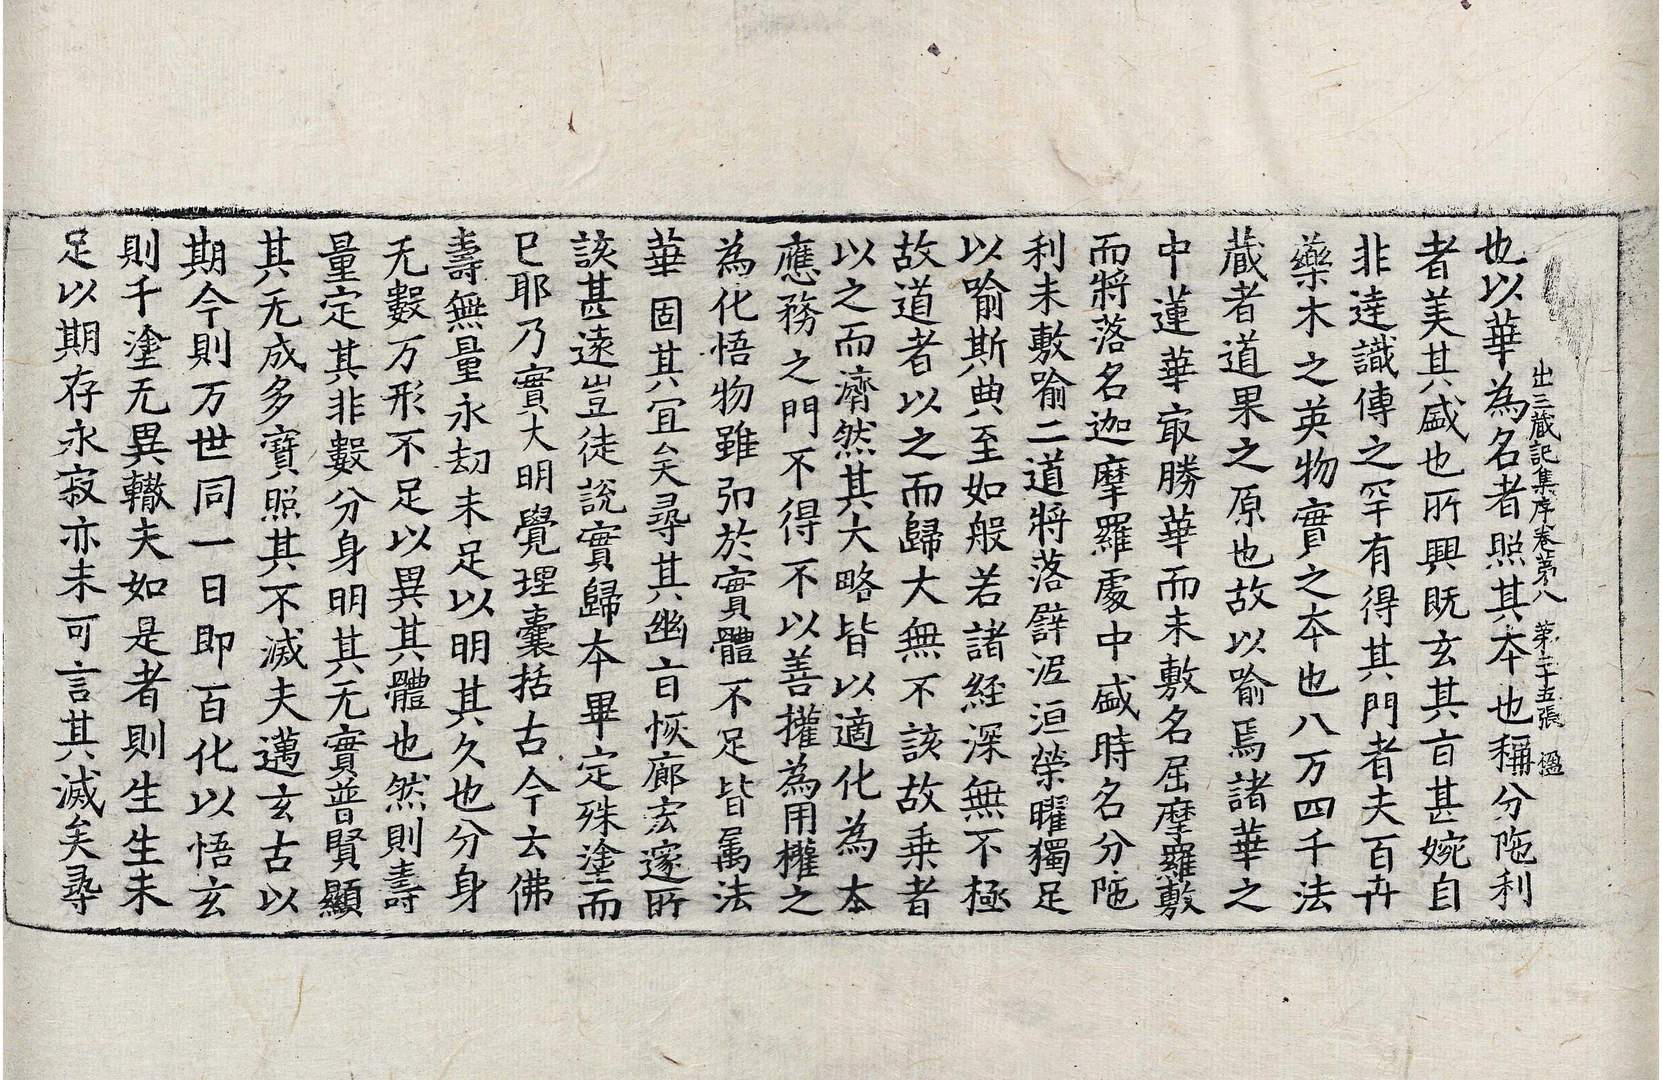 出三藏記集序卷第八　第二十五張　溫
也以華為名者照其本也稱分陁利
者美其盛也所興既玄其旨甚婉自
非達識傳之罕有得其門者夫百卉
藥木之英物實之本也八万四千法
藏者道果之原也故以喻焉諸華之
中蓮華㝡勝華而未敷名屈摩羅敷
而將落名迦摩羅處中盛時名分陁
利未敷喻二道將落譬泥洹榮曜獨足
以喻斯典至如般若諸經深無不極
故道者以之而歸大無不該故乗者
以之而濟然其大略皆以適化為本
應務之門不得不以善權為用權之
為化悟物雖弘於實體不足皆屬法
華固其宜矣尋其幽旨恢廓宏邃所
該甚遠豈徒說實歸本畢定殊塗而
已耶乃實大明覺理囊括古今云佛
壽無量永劫未足以明其久也分身
无數万形不足以異其體也然則壽
量定其非數分身明其无實普賢顯
其无成多寶照其不滅夫邁玄古以
期今則万世同一日即百化以悟玄
則千塗无異轍夫如是者則生生未
足以期存永寂亦未可言其滅矣尋